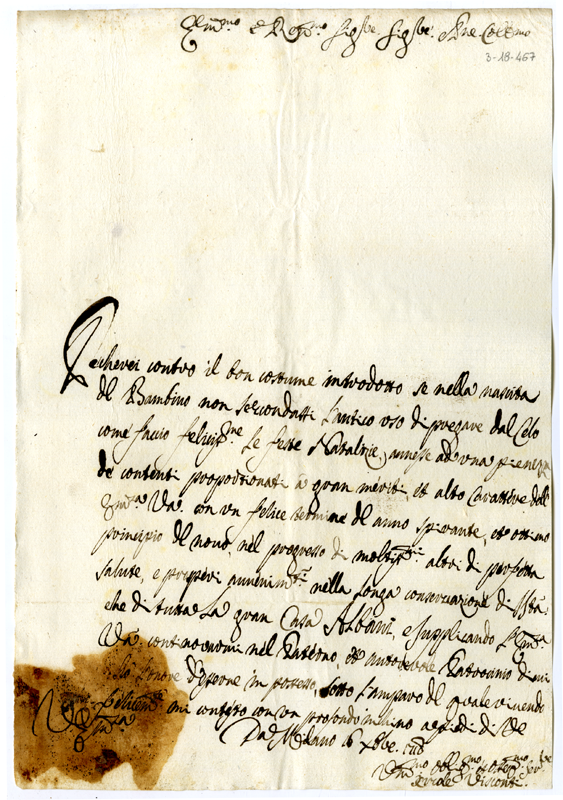 Em.mo e R.mo Sig.re Sig.re P.ne Col.mo
3-18-467
Pecherei contro il bon costume introdotto se nella nascita
del Bambino non secondassi l'antico uso di pregare dal Celo
come faccio feliciss.me le feste Natalizie, annesse ad una pienezza
de contenti proporzionati a gran meriti, et alto Carattere dell
Em.za V.a con un felice termine del anno spirante, et ottimo
principio del novo, nel progresso di moltiss.mi altri di perfetta
salute, e prosperi avvenim.ti nella longa conservazione di
che di tutta la gran Casa Albani, e supplicando l'Em.za
V.a continovarmi nel Paterno, et autorevole Patrocinio di cui
l'onore d'esserne in possesso, sotto l'amparo del quale vivendo
mi contesto con un profondo inchino a piedi di
V. Em.za
Da Milano 16 Xbre
Um.mo Obl.mo
Visconti